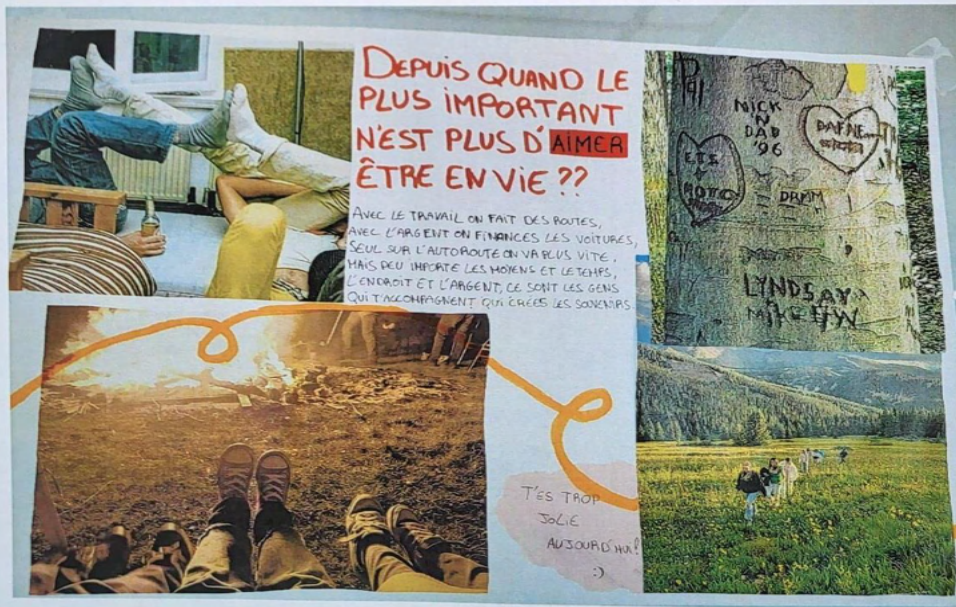 DEPUIS QUAND LE
PLUS IMPORTANT
N'EST PLUS D'AIMER
ÊTRE EN VIE ??
AVEC LE TRAVAIL ON FAIT DES ROUTES,
AVEC L'ARGENT ON FINANCES LES VOITURES,
SEUL SUR L'AUTOROUTE ON VA PLUS VITE.
MAIS PEU IMPORTE LES MOYENS ET LE TEMPS,
L'ENDROIT ET L'ARGENT, CE SONT LES GENS
QUI T'ACCOMPAGNENT QUI CRÉES LES SOUVENIRS.
NICK
N
DAD
'96
DAFNE
LYNDSAY
T'ES TROP
JOLIE
AUJOURD'HUI!
:)